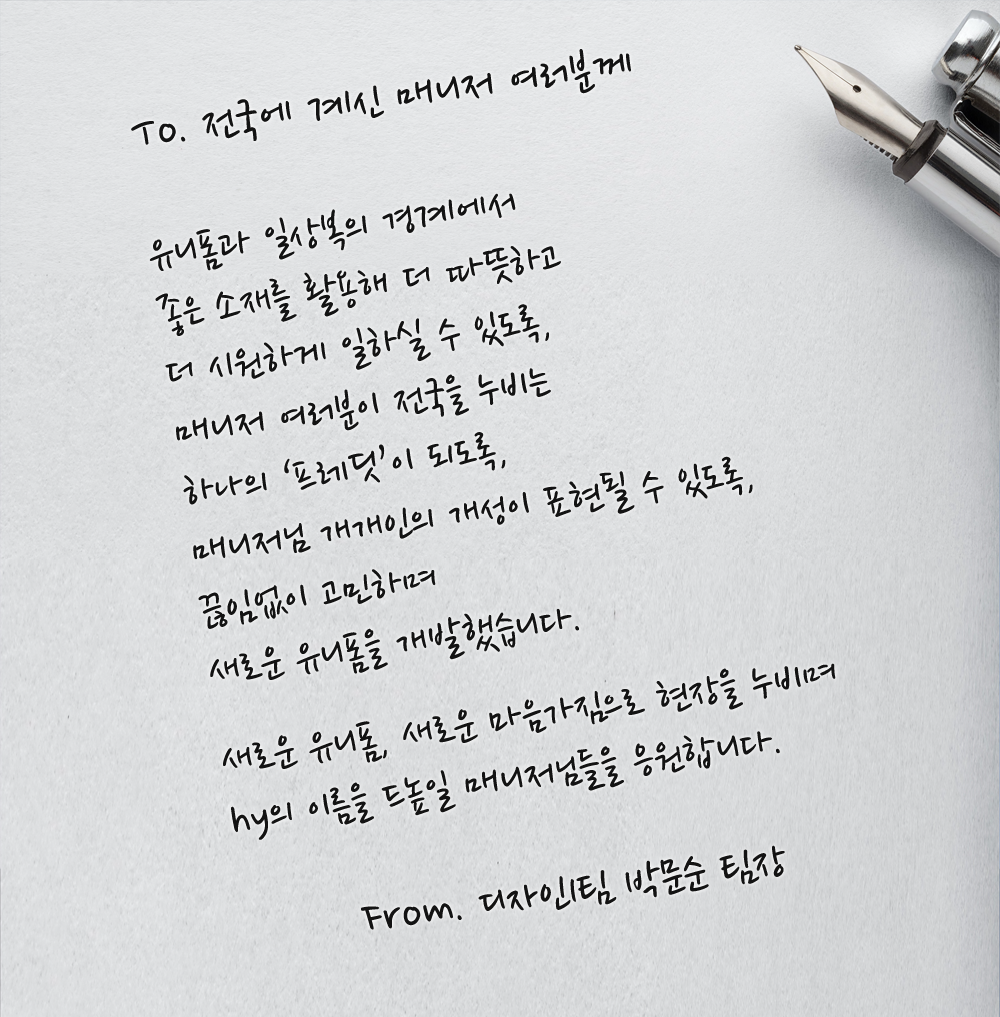 To. 전국에 계신 매니저 여러분께
유니폼과 일상복의 경계에서
좋은 소재를 활용해 더 따뜻하고
더 시원하게 일하실 수 있도록,
매니저 여러분이 전국을 누비는
하나의 ‘프레딧’이 되도록,
매니저님 개개인의 개성이 표현될 수 있도록,
끊임없이 고민하며
새로운 유니폼을 개발했습니다.
새로운 유니폼, 새로운 마음가짐으로 현장을 누비며
hy의 이름을 드높일 매니저님들을 응원합니다.
From. 디자인1팀 박문순 팀장